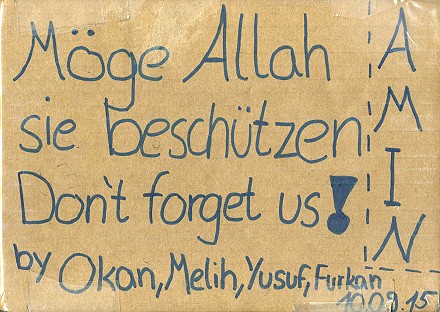 Möge Allah
sie beschützen
Don't forget us!
by Okan, Melih, Yusuf, Furkan
10.09.15
AMIN